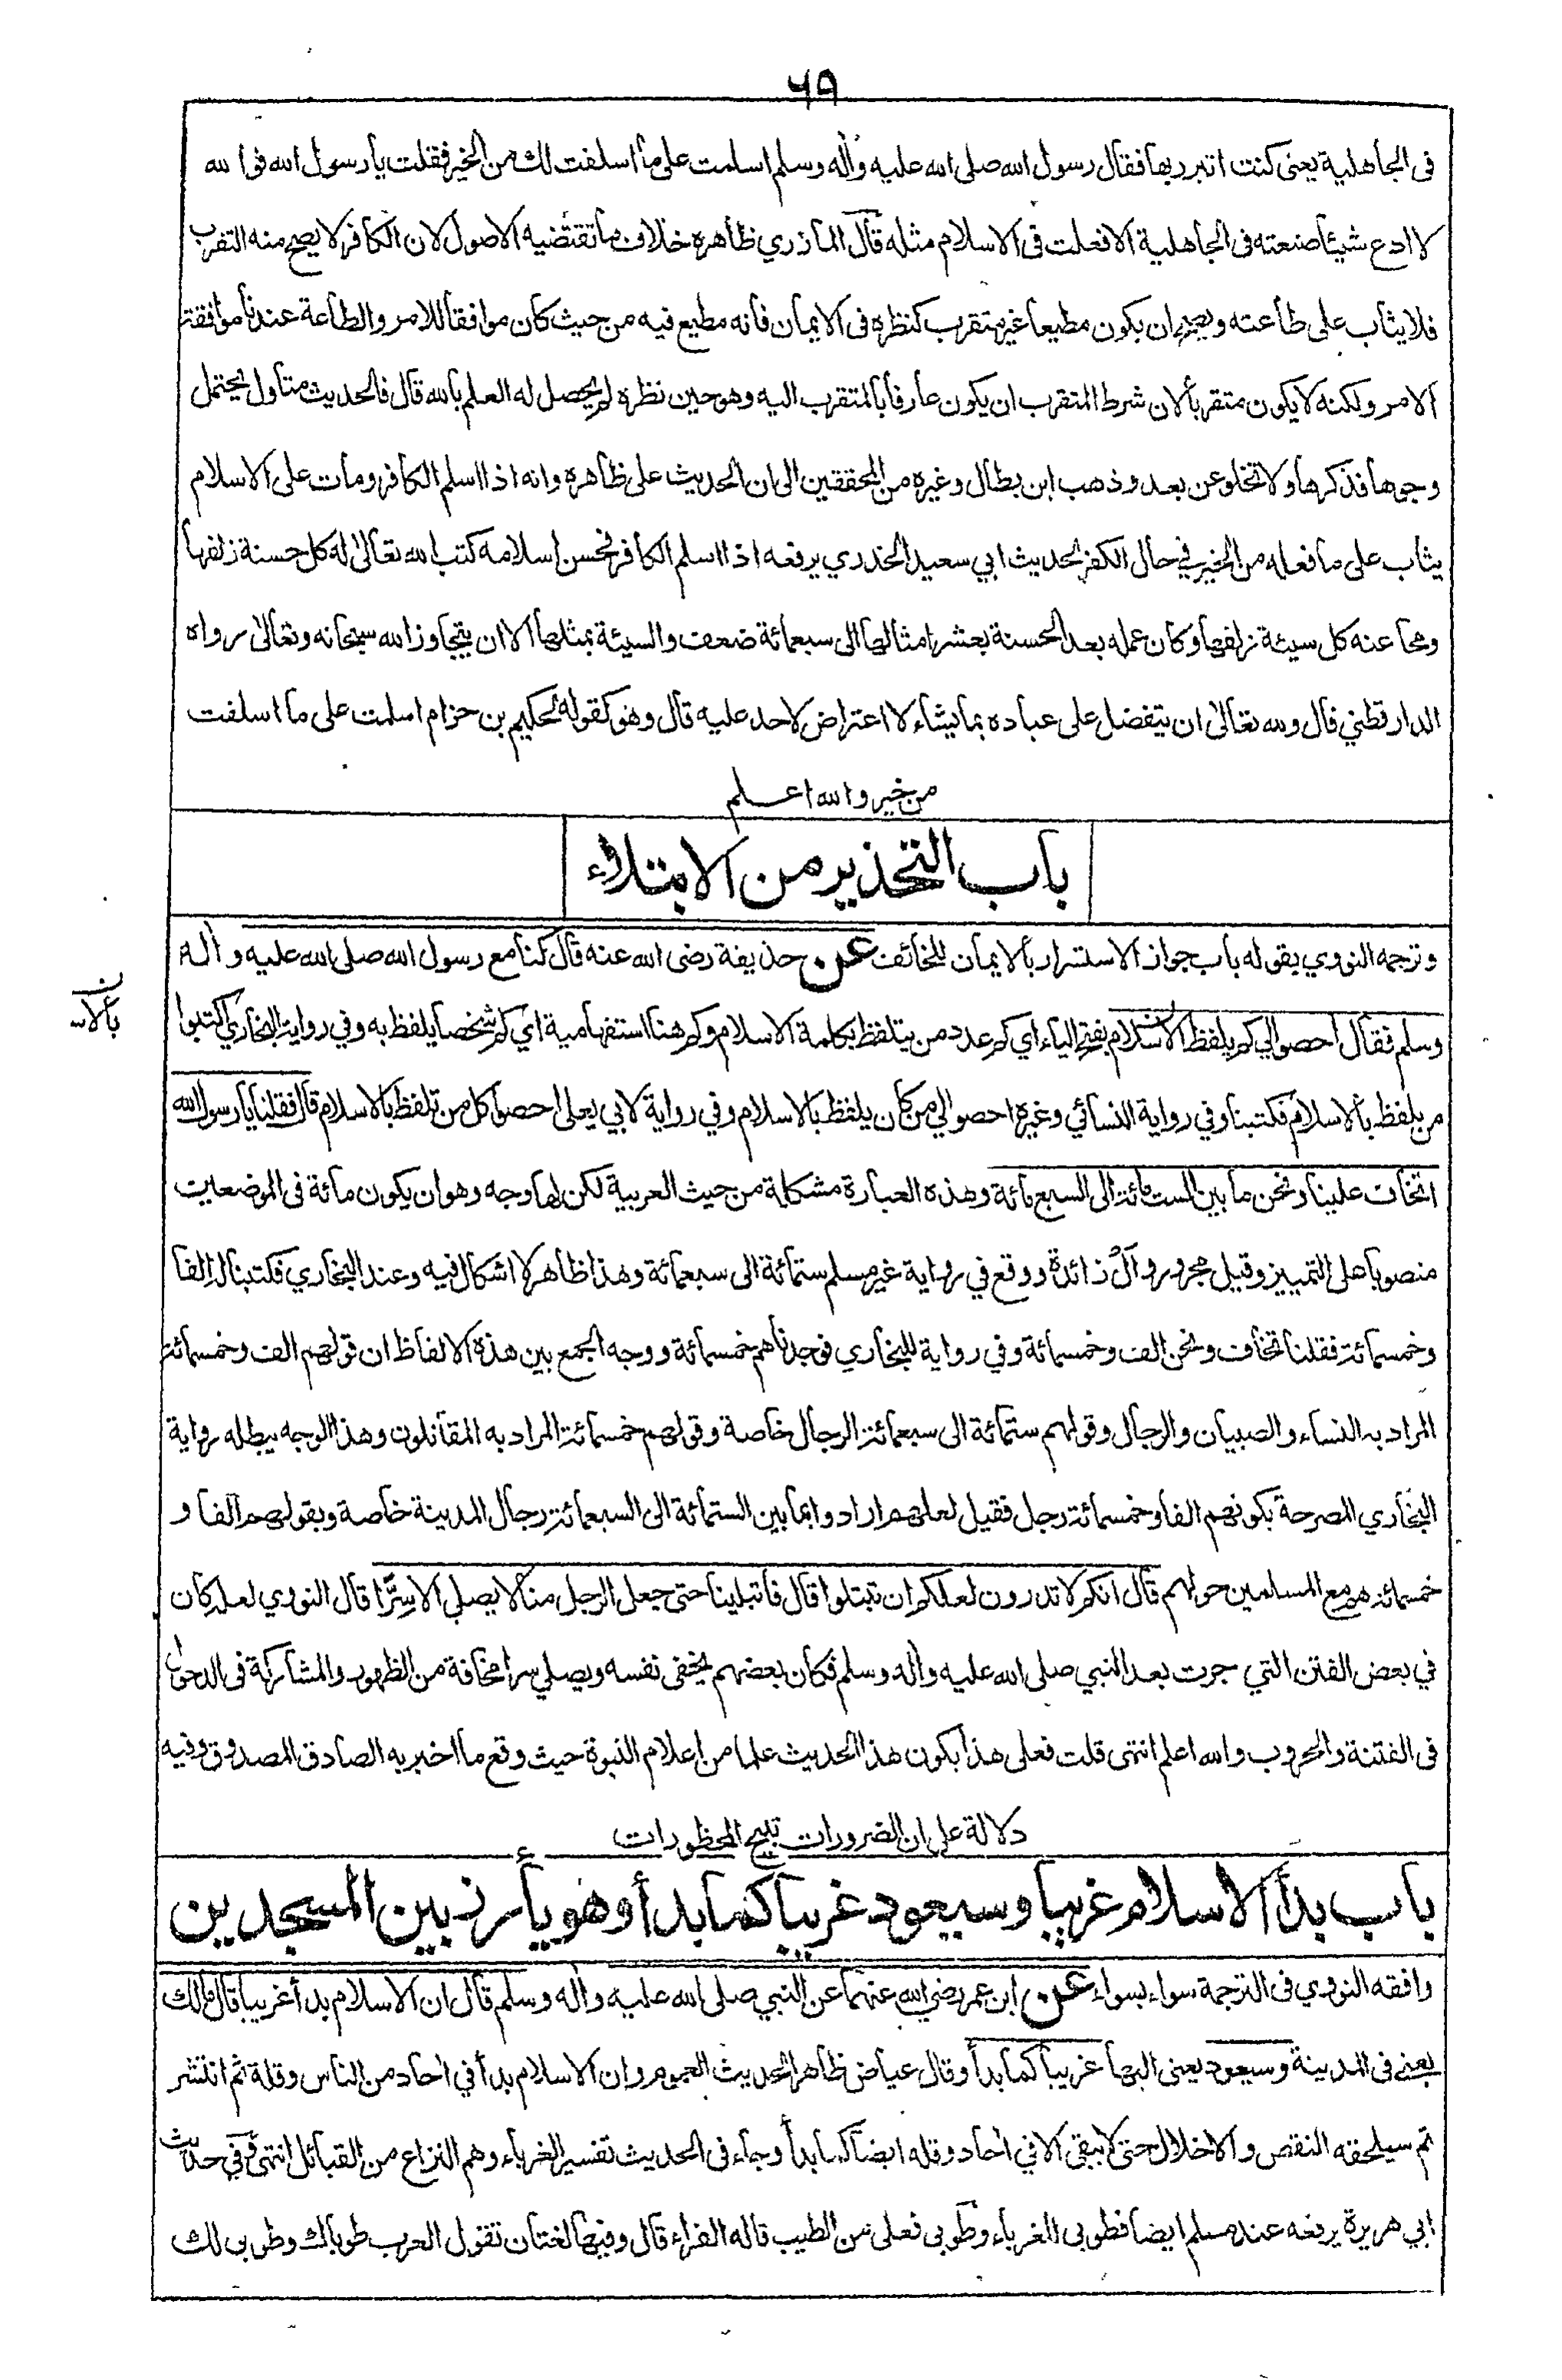 ٦٩
فى الجاهلية يعنى كنت اتبرر بها فقال رسول الله صلى الله عليه واله وسلم اسلمت على ما اسلفت لك من الخير فقلت يا رسول الله فوا لله
لا ادع شيئا صنعته فى الجاهلية الا فعلت فى الاسلام مثله قال المازري ظاهره خلاف ما تقتضيه الاصول لان الكافر لا يصح منه التقرب
فلا يثاب على طاعته ويصح ان يكون مطيعا غير متقرب كنظره فى الايمان فانه مطيع فيه من حيث كان موافقا للامر والطاعة عندنا موافقة
الامر ولكنه لا يكون متقربا لان شرط المتقرب ان يكون عارفا بالمتقرب اليه وهو حين نظره لم يحصل له العلم بالله قال فالحديث متاول يحتمل
وجوها فذكرها ولا تخلو عن بعد وذهب ابن بطال وغيره من المحققين الى ان الحديث على ظاهره وانه اذا اسلم الكافر ومات على الاسلام
يثاب على ما فعله من الخير في حال الكفر لحديث ابي سعيد الخدري يرفعه اذا اسلم الكافر فحسن اسلامه كتب الله تعالى له كل حسنة زلفها
ومحا عنه كل سيئة زلفها وكان عمله بعد الحسنة بعشر امثالها الى سبعمائة ضعف والسيئة بمثلها الا ان يتجاوز الله سبحانه وتعالى رواه
الدارقطني قال ولله تعالى ان يتفضل على عباده بما يشاء لا اعتراض لاحد عليه قال وهو كقوله لحكيم بن حزام اسلمت على ما اسلفت
من خير والله اعلم
باب التحذير من الابتلاء
وترجمه النووي بقوله باب جواز الاستسرار بالايمان للخائف عن حذيفة رضى الله عنه قال كنا مع رسول الله صلى الله عليه واله
وسلم فقال احصوا لي كم يلفظ الاسلام بفتح الياء اي كم عدد من يتلفظ بكلمة الاسلام وكم هنا استفهامية اي كم شخصا يلفظ به وفي رواية البخاري اكتبوا
من يلفظ بالاسلام فكتبنا وفي رواية النسائي وغيره احصوا لي من كان يلفظ بالاسلام وفي رواية لابي يعلى احصوا كل من تلفظ بالاسلام قال فقلنا يا رسول الله
اتخاف علينا ونحن ما بين الست مائة الى السبع مائة وهذه العبارة مشكلة من حيث العربية لكن لها وجه وهو ان يكون مائة فى الموضعين
منصوبا على التمييز وقيل مجرور وال زائدة ووقع في رواية غير مسلم ستمائة الى سبعمائة وهذا ظاهر لا اشكال فيه وعند البخاري فكتبنا له الفا
وخمسمائة فقلنا تخاف ونحن الف وخمسمائة وفي رواية للبخاري فوجدناهم خمسمائة ووجه الجمع بين هذه الالفاظ ان قولهم الف وخمسمائة
المراد به النساء والصبيان والرجال وقولهم ستمائة الى سبعمائة الرجال خاصة وقولهم خمسمائة المراد به المقاتلون وهذا الوجه يبطله رواية
البخاري المصرحة بكونهم الفا وخمسمائة رجل فقيل لعلهم ارادوا بما بين الستمائة الى السبعمائة رجال المدينة خاصة وبقولهم الفا و
خمسمائة هم مع المسلمين حولهم قال انكم لا تدرون لعلكم ان تبتلوا قال فابتلينا حتى جعل الرجل منا لا يصلي الا سِرًّا قال النووي لعله كان
في بعض الفتن التي جرت بعد النبي صلى الله عليه واله وسلم فكان بعضهم يخفى نفسه ويصلي سرا مخافة من الظهور والمشاركة فى الدخول
فى الفتنة والحروب والله اعلم انتهى قلت فعلى هذا يكون هذا الحديث علما من اعلام النبوة حيث وقع ما اخبر به الصادق المصدوق وفيه
دلالة على ان الضرورات تبيح المحظورات
باب بدأ الاسلام غريبا وسيعود غريبا كما بدأ وهو يأرز بين المسجدين
وافقه النووي فى الترجمة سواء بسواء عن ابن عمر رضي الله عنهما عن النبي صلى الله عليه واله وسلم قال ان الاسلام بدأ غريبا قال مالك
يعني فى المدينة وسيعود يعنى اليها غريبا كما بدأ وقال عياض ظاهر الحديث العموم وان الاسلام بدأ في احاد من الناس وقلة ثم انتشر
ثم سيلحقه النقص والاخلال حتى لا يبقى الا في احاد وقلة ايضا كما بدأ وجاء فى الحديث تفسير الغرباء وهم النزاع من القبائل انتهى وفي حديث
ابي هريرة يرفعه عند مسلم ايضا فطوبى للغرباء وطوبى فعلى من الطيب قاله الفراء قال وفيها لغتان تقول العرب طوباك وطوبى لك